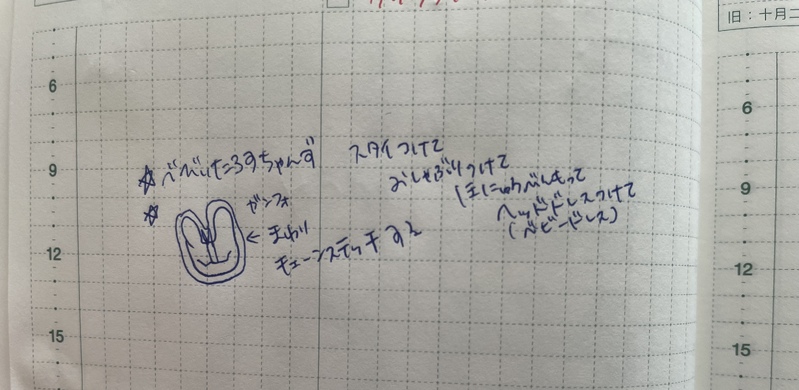 旧：十月二
6
6
☆ べべたろすちゃんず
スタイつけて
9
おしゃぶりつけて
9
ほにゅうべんもって
ヘッドドレスつけて
(ベビードレス)
☆
← まわり
チェーンステッチする
12
12
15
15